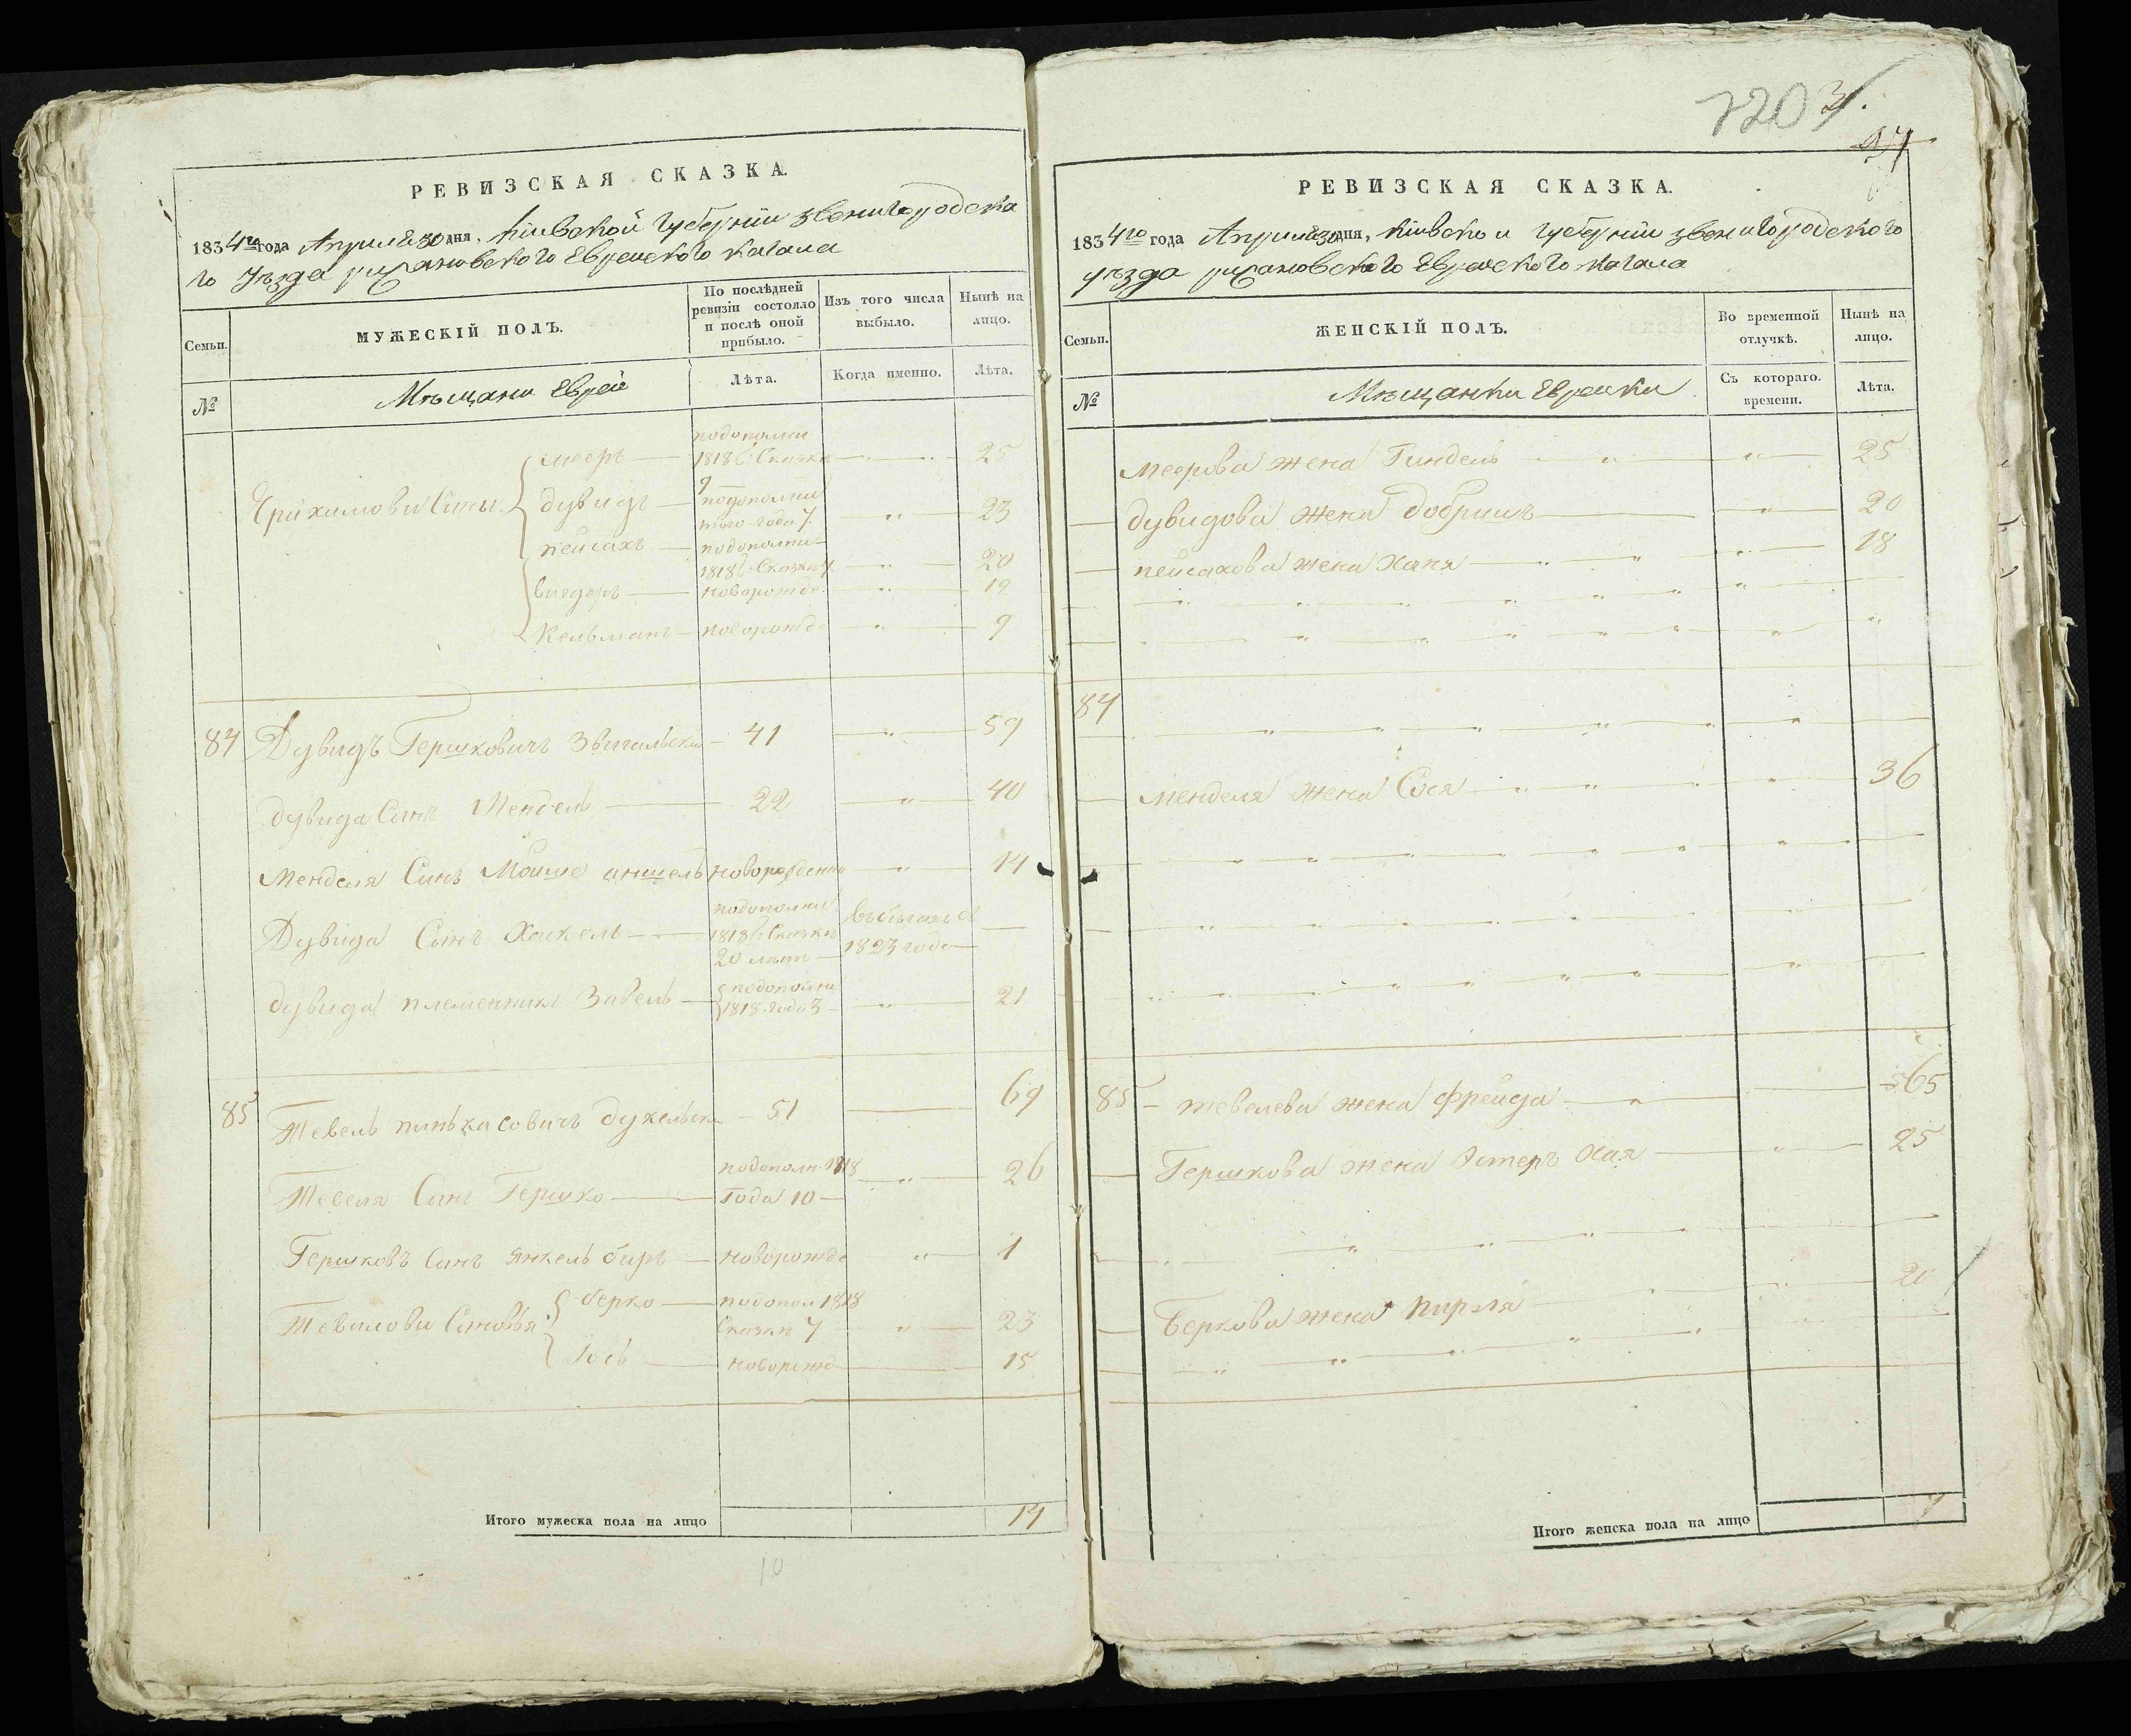 РЕВИЗСКАЯ СКАЗКА.
1834го года Апреля 30 дня, Кіевской Губерніи Звенигородска
го Уѣзда рижановского Еврейского кагала
Семьи.
МУЖЕСКІЙ ПОЛЪ.
По послѣдней ревизіи состояло и послѣ оной прибыло.
Изъ того числа выбыло.
Нынѣ на лицо.
№
Мѣщани Евреи
Лѣта.
Когда именно.
Лѣта.
подополни
Мееръ 1818 Сказки 25
сины Дувидъ подополни того года 7 23
пейсахъ подополни 1818 Сказки 20
Вигдоръ новорожде 19
Кельманъ новорожде 9
84 Дувидъ Гершковичъ Звигальски 41 59
Дувида Синъ Мендель 22 40
Менделя Синъ Мошке аншель новорожденни 14
Дувида Синъ Хаскель подополни 1818 Сказки 20 лѣтъ 1823 года
Дувида племенникъ Завель подополни 1818 года 3 21
85 Тевель пинькасовичъ Дукельски 51 69
Тевеля Синъ Гершко подополн. 1818 Года 10 26
Гершковъ Синъ Янкель биръ новорожде 1
Тевелови Синовья Берко подопол 1818 Сказки 7 23
Іось новорожд 15
Итого мужеска пола на лицо 14
10
7203
РЕВИЗСКАЯ СКАЗКА.
1834го года Апреля 30 дня, Кіевской Губерніи Звенигородского
уѣзда рижановского Еврейского кагала
Семьи.
ЖЕНСКІЙ ПОЛЪ.
Во временной отлучкѣ.
Нынѣ на лицо.
№
Мѣщанки Еврейки
Съ котораго. времени.
Лѣта.
Меерова жена Гиндель 25
Дувидова жена Добришъ 20
пейсахова жена Хапя 18
84
Менделя жена Сося 36
85 Тевелева жена Фрейда 65
Гершкова жена Эстеръ Хая 25
Беркова жена пирля 20
Итого женска пола на лицо 7